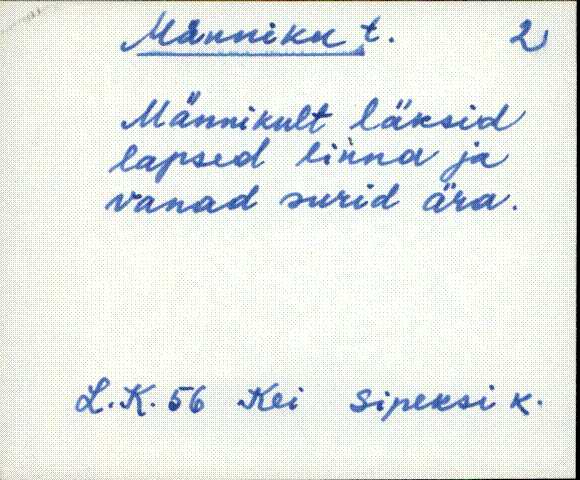 Männiku t. 2
Männikult läksid
lapsed linna ja
vanad surid ära.
L.K. 56 Kei Sipeksi k.